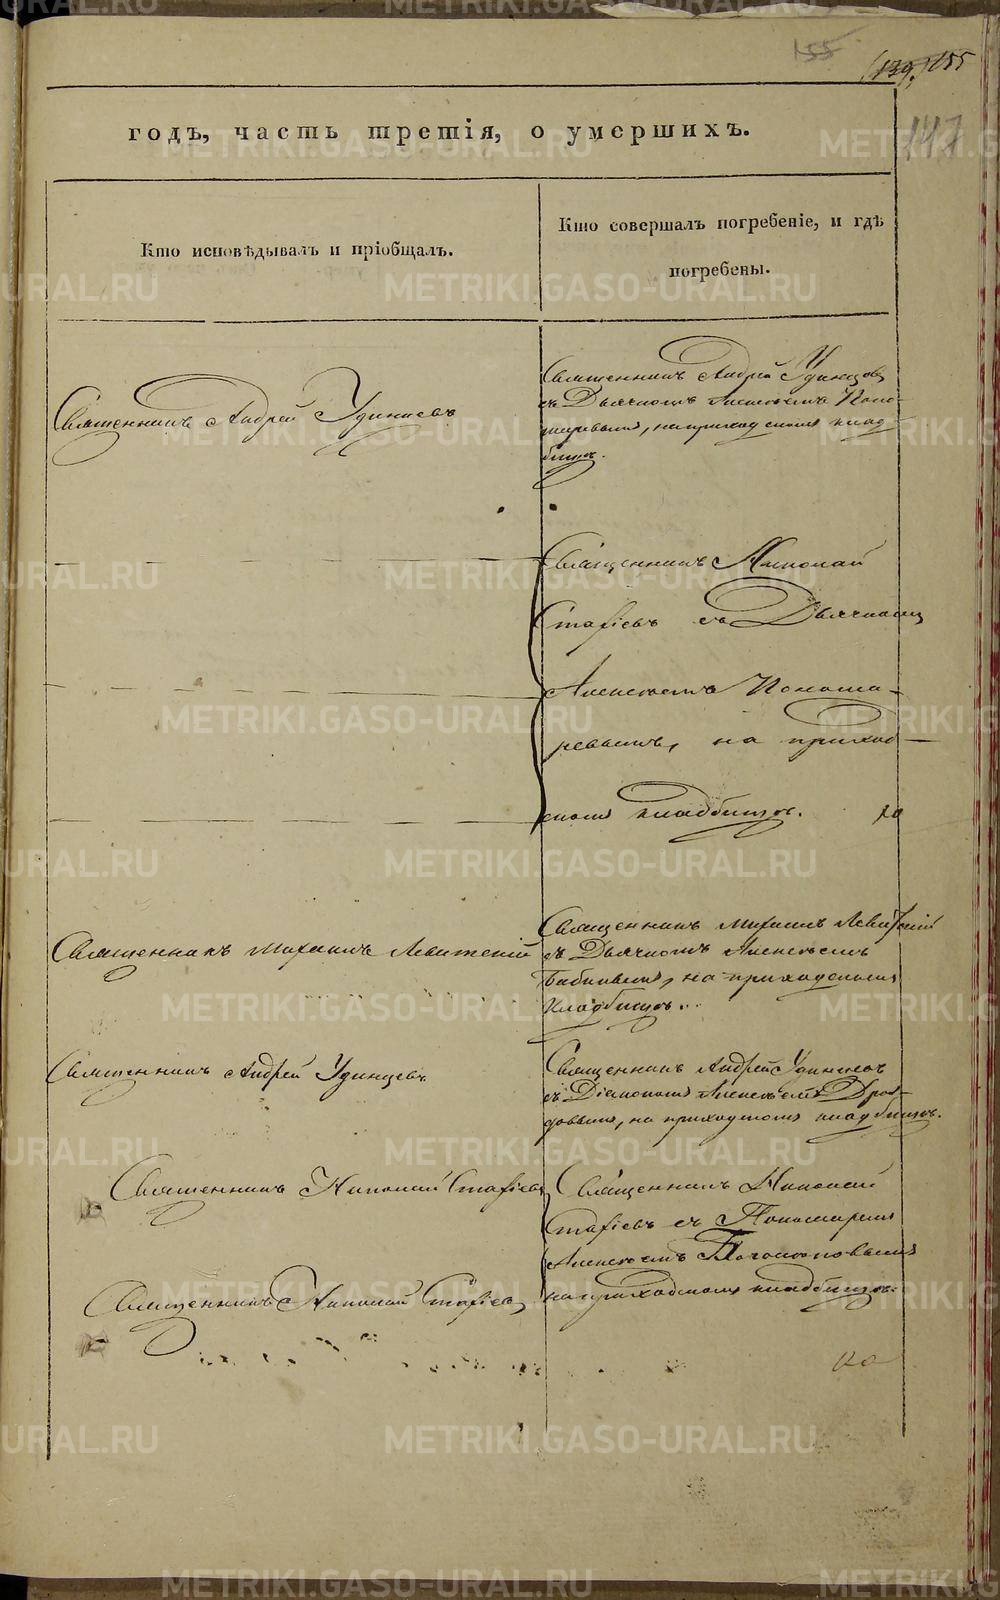 155
(139) 155
147
годъ, часть третія, о умершихъ.
Кто исповѣдывалъ и пріобщалъ.
Кто совершалъ погребеніе, и гдѣ
погребены.
Священникъ Андрей Удинцевъ
Священникъ Андрей Удинцовъ
съ Дьячкомъ Алексѣемъ Коно-
на приходскомъ клад
бищѣ.
Священникъ Николай
Стафіевъ съ Дьячкомъ
Алексѣемъ
ревымъ, на приход—
скомъ кладбищѣ.
Священникъ Михаилъ Левитскій
Священникъ Михаилъ Левитскій
съ Дьячкомъ Алексѣемъ
на приходскомъ
кладбищѣ.
Священникъ Андрей Удинцевъ
Священникъ Андрей Удинцевъ
съ Діакономъ Алексѣемъ Дроз-
довымъ, на приходскомъ кладбищѣ.
Священникъ Николай Стафіевъ
Священникъ Николай
Стафіевъ съ Пономаремъ
Алексѣемъ
на приходскомъ кладбищѣ.
Священникъ Николай Стафіевъ
METRIKI.GASO-URAL.RU